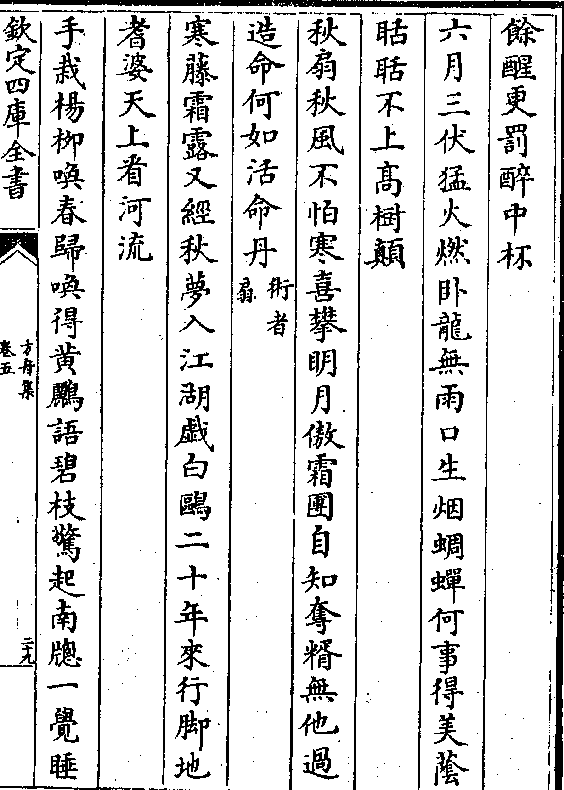 餘醒更罰醉中杯
六月三伏猛火燃卧龍無雨口生烟蜩蟬何事得美蔭
聒聒不上髙樹顛
秋扇秋風不怕寒喜攀明月傲霜團自知奪糈無他過
造命何如活命丹術者扇
寒藤霜露又經秋夢入江湖戯白鷗二十年來行脚地
耆婆天上看河流
手栽楊柳喚春歸喚得黄鸝語碧枝驚起南牕一覺睡
欽定四庫全書
方舟集
卷五
二九